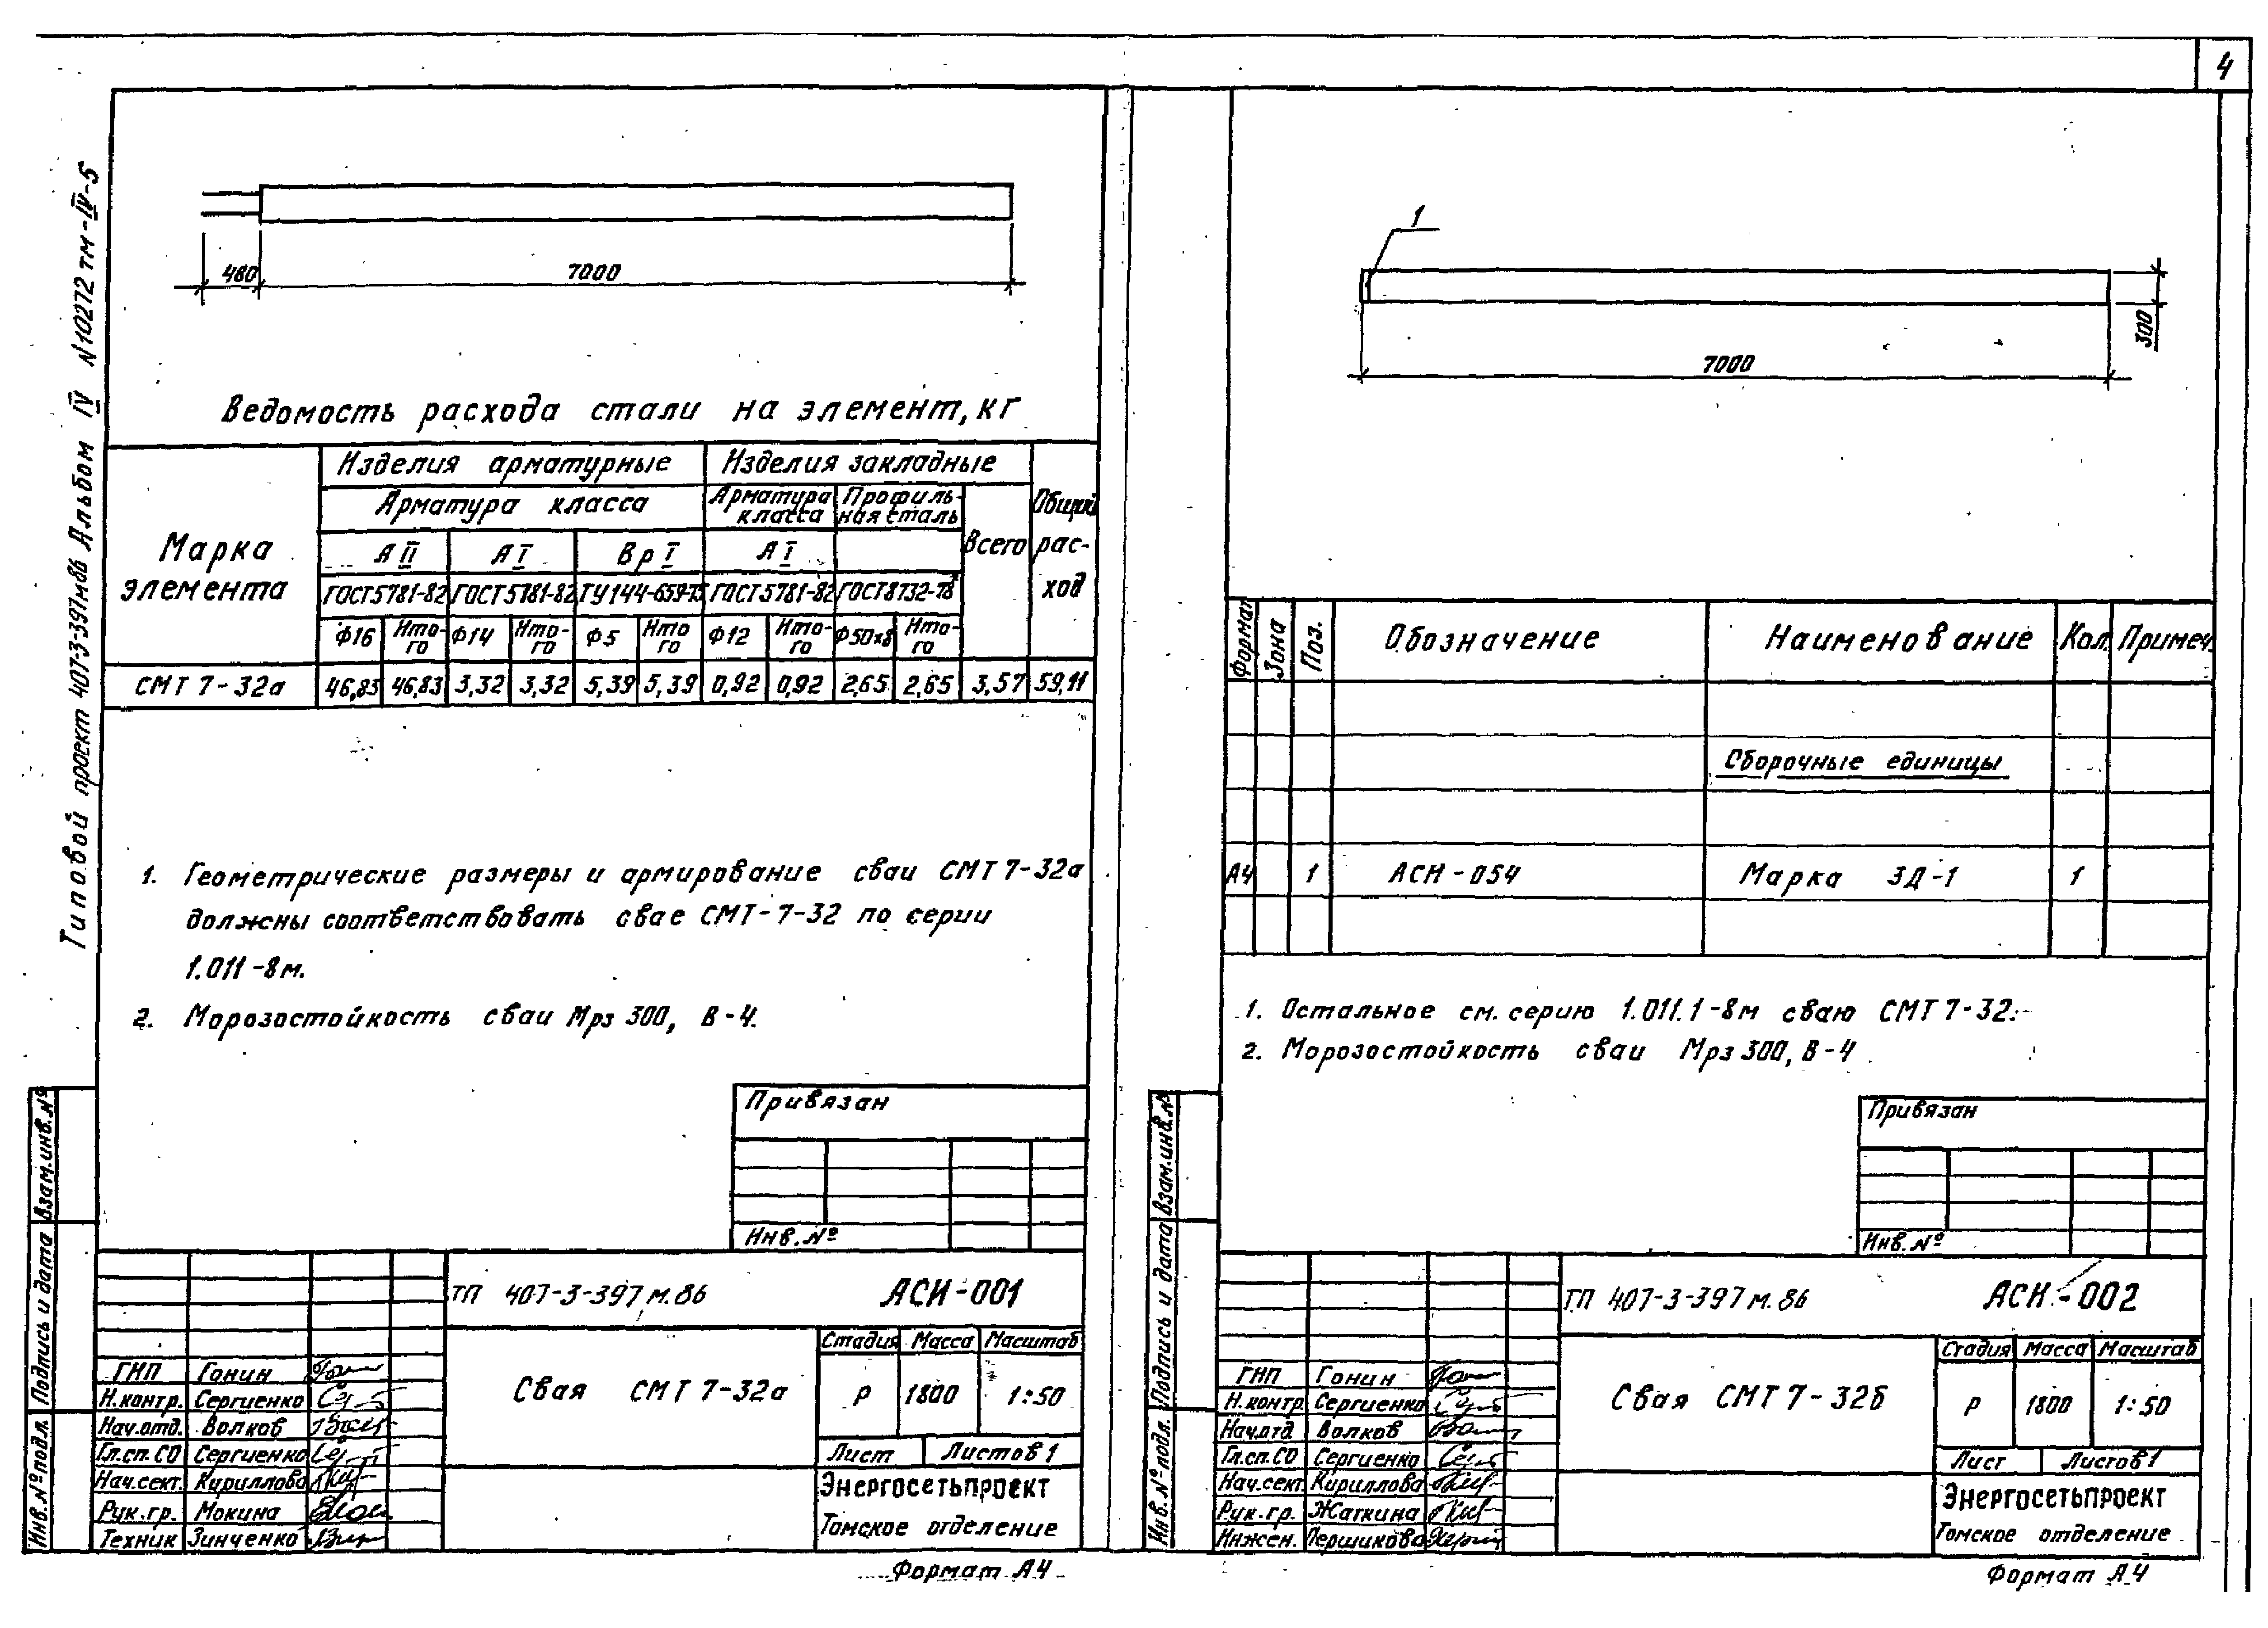 4
Типовой проект 407-3-397м.86 Альбом IV N10272 тм-IV-5
480
7000
Ведомость расхода стали на элемент, кг
Марка элемента
Изделия арматурные
Изделия закладные
Общий рас-ход
Арматура класса
Арматура класса
Профиль-ная сталь
Всего
А II
А I
Вр I
А I
ГОСТ5781-82
ГОСТ5781-82
ТУ144-659-75
ГОСТ5781-82
ГОСТ8732-78
Ф16
Ито-го
Ф14
Ито-го
Ф5
Ито го
Ф12
Ито-го
Ф50х8
Ито-го
СМТ 7-32а 46,83 46,83 3,32 3,32 5,39 5,39 0,92 0,92 2,65 2,65 3,57 59,11
1. Геометрические размеры и армирование сваи СМТ 7-32а
должны соответствовать свае СМТ-7-32 по серии
1.011-8м.
2. Морозостойкость сваи Мрз 300, В-4.
Привязан
Инв. №
Взам.инв.№
Подпись и дата
Инв.№подл.
ТП 407-3-397 м.86 АСИ-001
Свая СМТ 7-32а
Стадия Масса Масштаб
Р 1800 1:50
Лист Листов 1
ГИП Гонин
Н.контр. Сергиенко
Нач.отд. Волков
Гл.сп.СО Сергиенко
Нач.сект. Кириллова
Рук.гр. Мокина
Техник Зинченко
Энергосетьпроект
Томское отделение
Формат А4
1
7000
300
Формат Зона Поз. Обозначение Наименование Кол. Примеч.
Сборочные единицы
А4 1 АСИ-054 Марка ЗД-1 1
1. Остальное см. серию 1.011.1-8м сваю СМТ 7-32.
2. Морозостойкость сваи Мрз 300, В-4
Привязан
Инв. №
Взам.инв.№
Подпись и дата
Инв.№подл.
ТП 407-3-397 м.86 АСИ-002
Свая СМТ 7-32б
Стадия Масса Масштаб
Р 1800 1:50
Лист Листов 1
ГИП Гонин
Н.контр. Сергиенко
Нач.отд Волков
Гл.сп.СО Сергиенко
Нач.сект. Кириллова
Рук.гр. Жаткина
Инжен. Першикова
Энергосетьпроект
Томское отделение
Формат А4